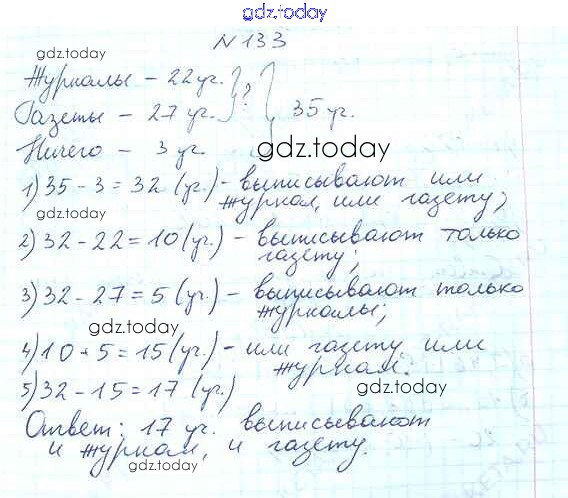 gdz.today
gdz.today
N 133
Журналы – 22 уч.
Газеты – 27 уч. } ? } 35 уч.
Ничего – 3 уч.
gdz.today
1) 35 - 3 = 32 (уч.) - выписывают или
журнал, или газету;
gdz.today
2) 32 - 22 = 10 (уч.) - выписывают только
газету;
3) 32 - 27 = 5 (уч.) - выписывают только
журналы;
gdz.today
4) 10 + 5 = 15 (уч.) - или газету или
журнал.
5) 32 - 15 = 17 (уч.)
gdz.today
Ответ: 17 уч. выписывают
и журнал, и газету.
gdz.today